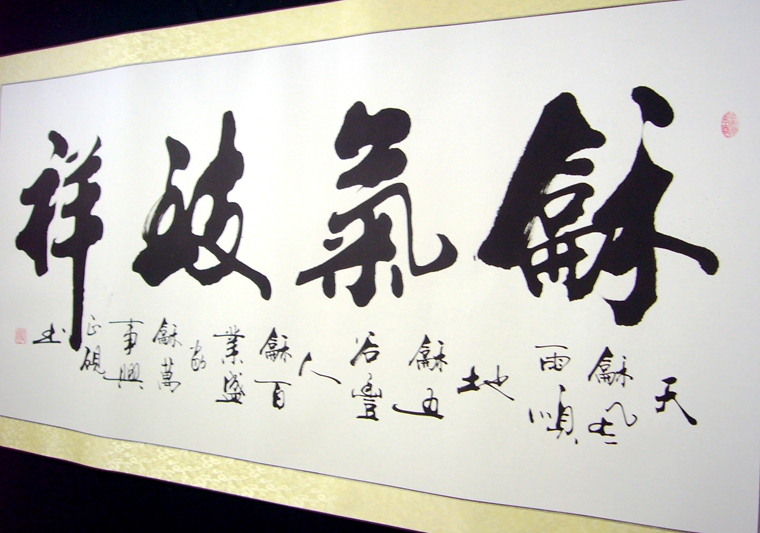 龢氣致祥
天
龢風
雨順
地
龢五
谷豐
人
龢百
業盛
家
龢萬
事興
正硯
书